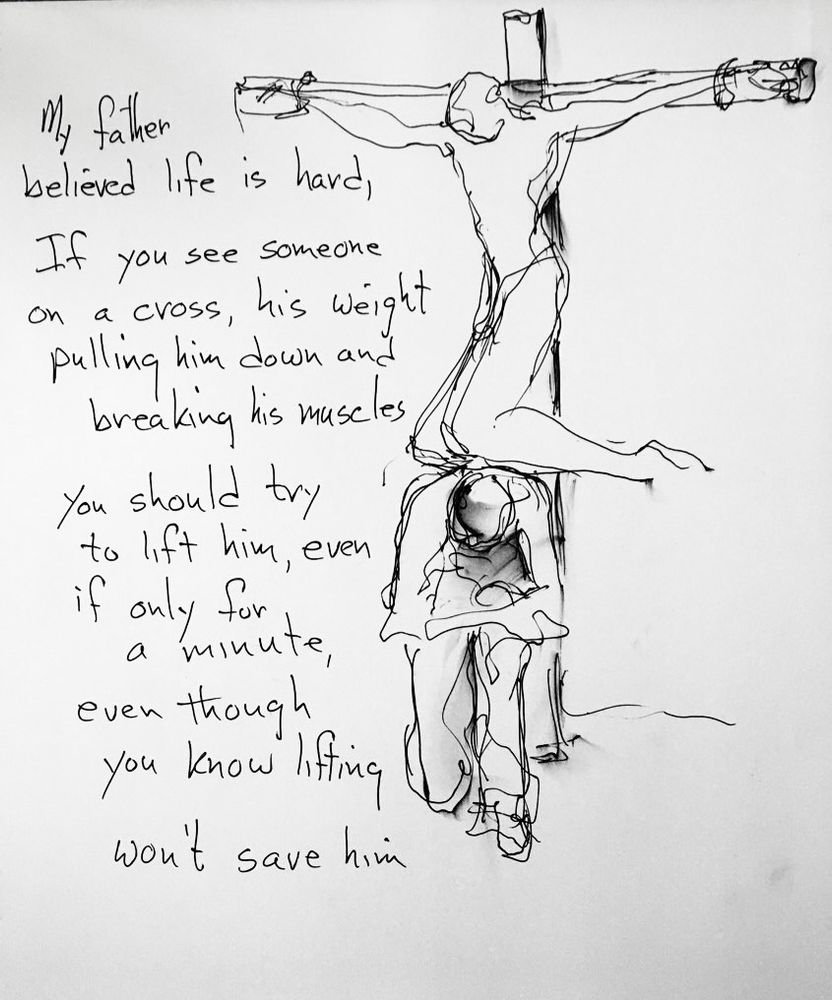 My father
believed life is hard,
If you see someone
on a cross, his weight
pulling him down and
breaking his muscles
You should try
to lift him, even
if only for
a minute,
even though
you know lifting
won't save him